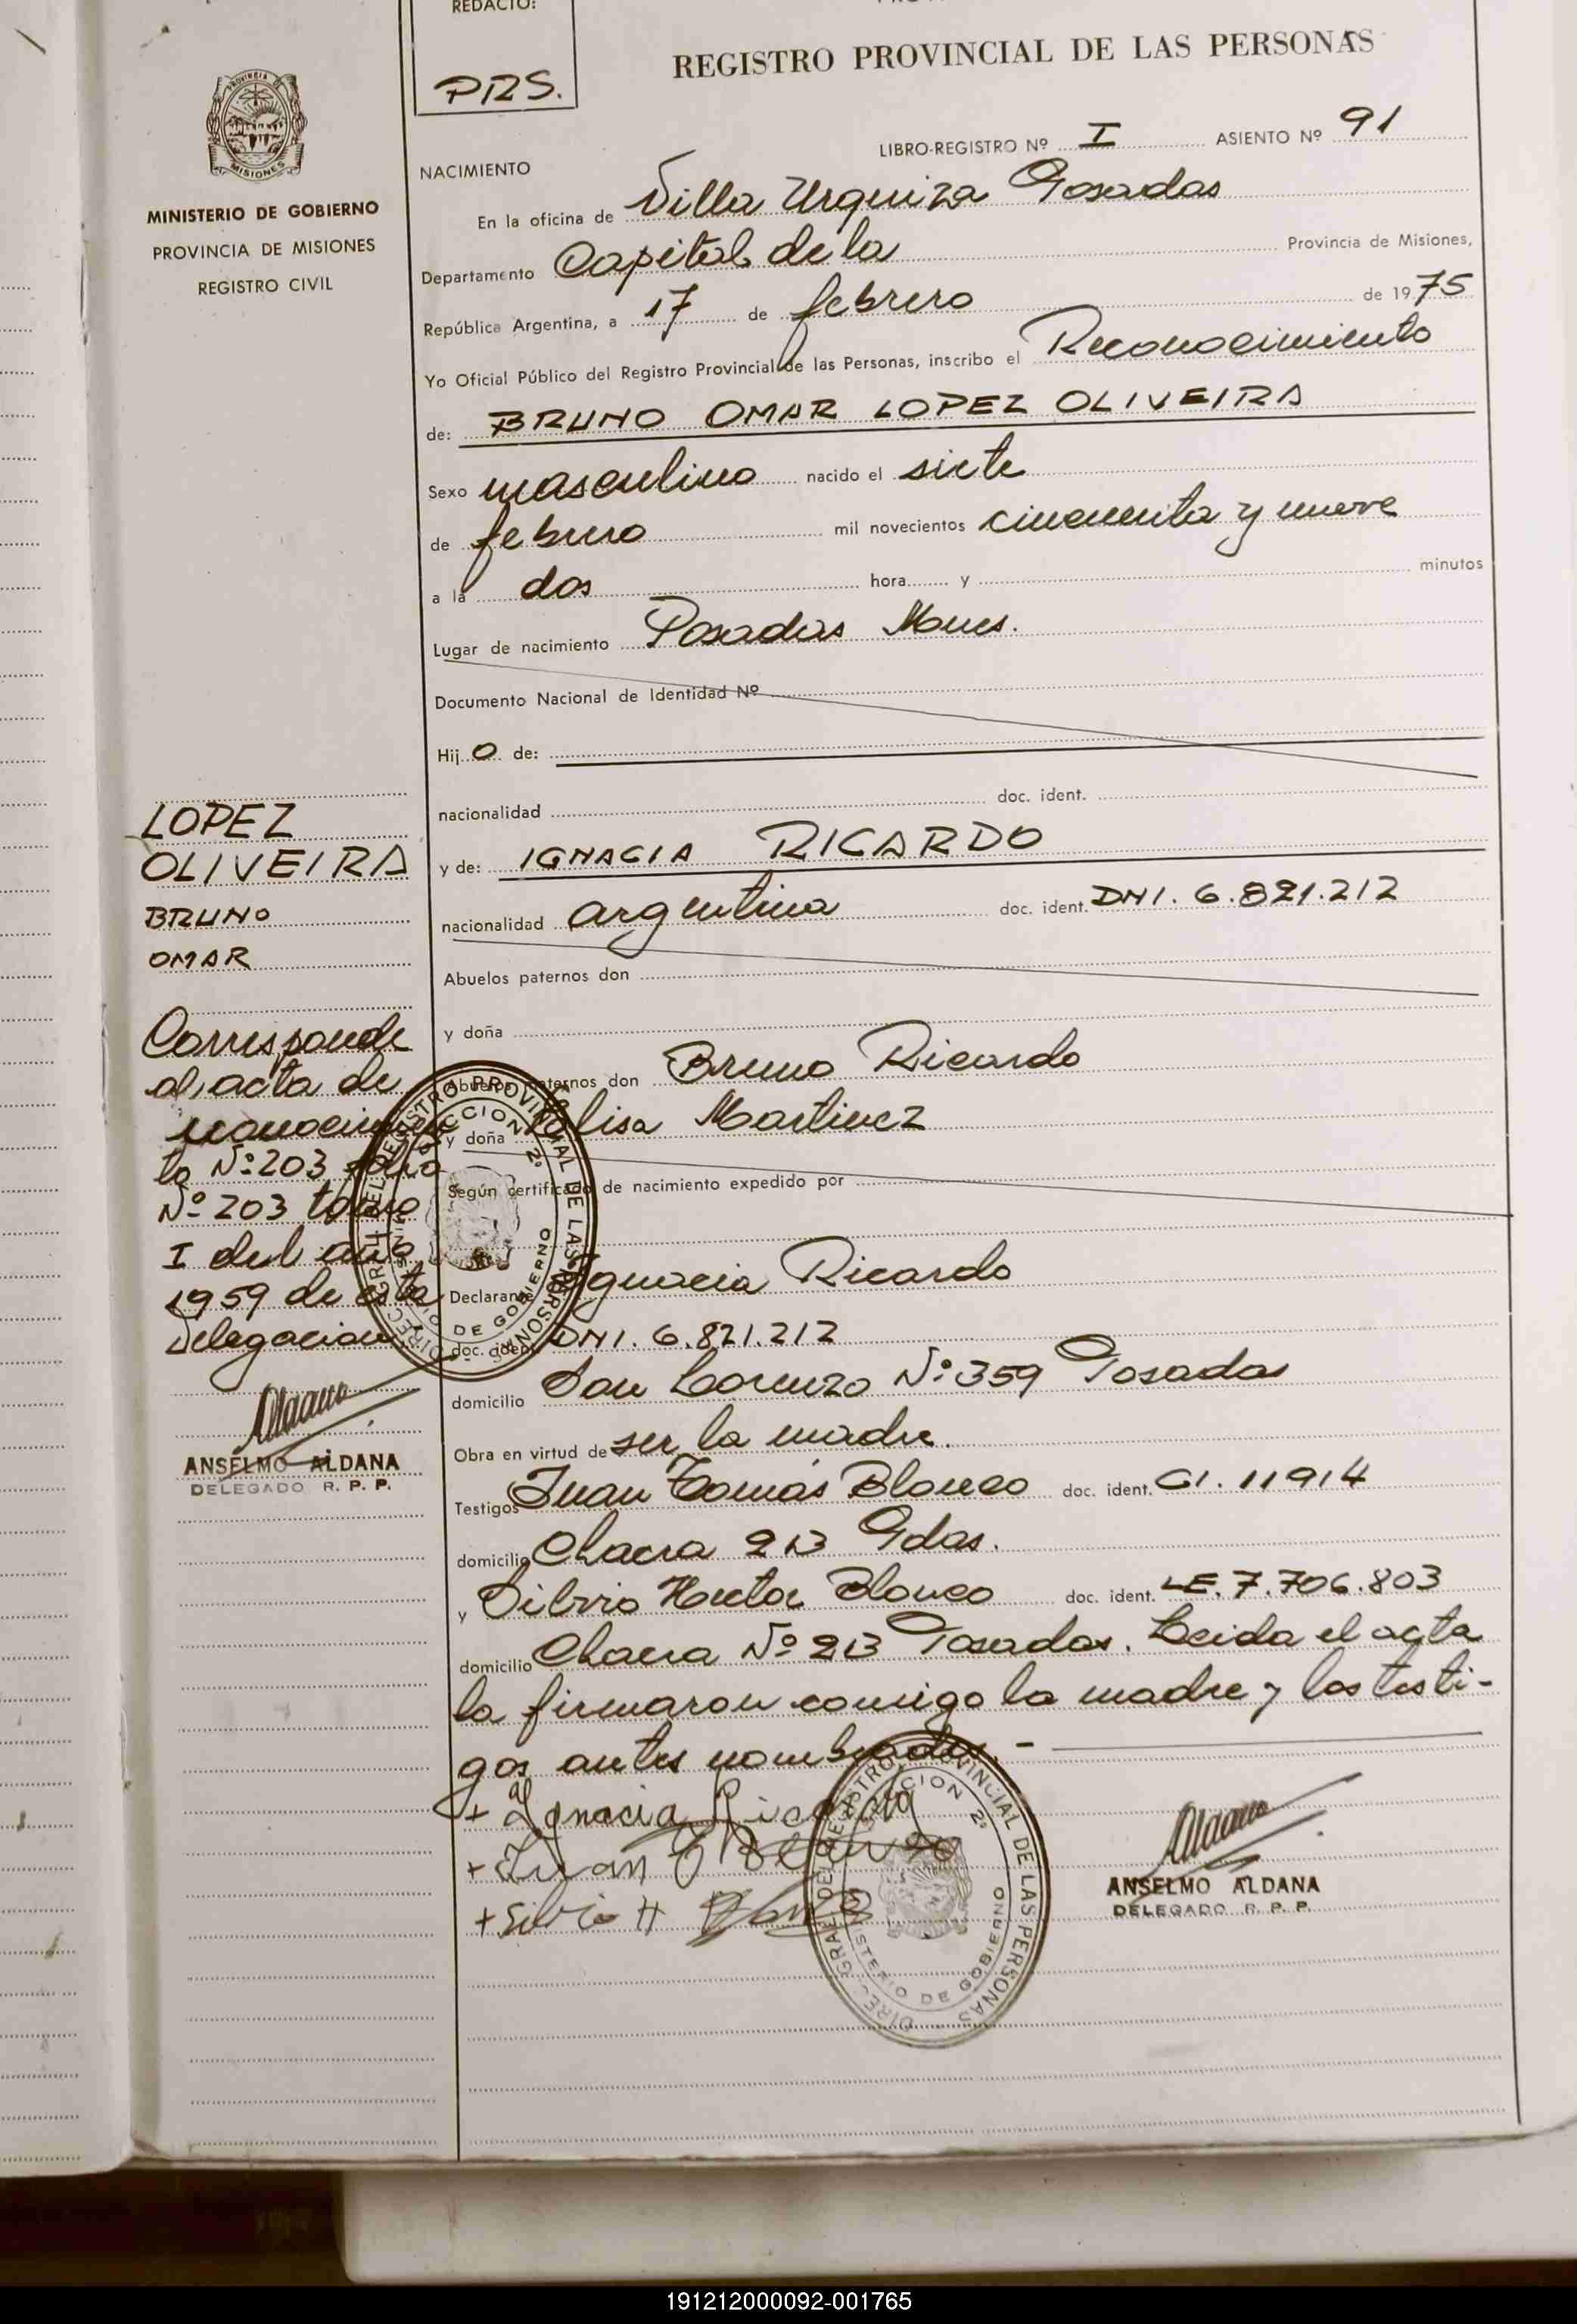 REDACTO:
PRS.
REGISTRO PROVINCIAL DE LAS PERSONAS
PROVINCIA DE MISIONES
MINISTERIO DE GOBIERNO
PROVINCIA DE MISIONES
REGISTRO CIVIL
LIBRO-REGISTRO Nº I ASIENTO Nº 91
NACIMIENTO
En la oficina de Villa Urquiza Posadas
Departamento Capital de la Provincia de Misiones,
República Argentina, a 17 de febrero de 1975
Yo Oficial Público del Registro Provincial de las Personas, inscribo el Reconocimiento
de: BRUNO OMAR LOPEZ OLIVEIRA
Sexo masculino nacido el siete
de febrero mil novecientos cincuenta y nueve
a la dos hora y minutos
Lugar de nacimiento Posadas Mnes.
Documento Nacional de Identidad Nº
Hij o de:
nacionalidad doc. ident.
y de: IGNACIA RICARDO
nacionalidad argentina doc. ident. DNI. 6.821.212
Abuelos paternos don
y doña
Abuelos maternos don Bruno Ricardo
y doña Elisa Martinez
Según certificado de nacimiento expedido por
Declarante Ignacia Ricardo
doc. ident. DNI. 6.821.212
domicilio San Lorenzo Nº 359 Posadas
Obra en virtud de ser la madre.
Testigos Juan Tomás Blanco doc. ident. CI. 11914
domicilio Chacra 213 Pdas.
y Silvio Hector Blanco doc. ident. LE. 7.706.803
domicilio Chacra Nº 213 Posadas. Leida el acta
la firmaron conmigo la madre y los testi-
gos antes nombrados. -
+ Ignacia Ricardo
+ Juan T Blanco
+ Silvio H Blanco
ANSELMO ALDANA
DELEGADO R. P. P.
DIREC. GRAL DEL REGISTRO PROVINCIAL DE LAS PERSONAS
SECCION 2º
MINISTERIO DE GOBIERNO
LOPEZ
OLIVEIRA
BRUNO
OMAR
Corresponde
al acta de
reconocimien
to Nº 203 folio
Nº 203 tomo
I del año
1959 de esta
Delegacion
ANSELMO ALDANA
DELEGADO R. P. P.
DIREC. GRAL DEL REGISTRO PROVINCIAL DE LAS PERSONAS
SECCION 2º
MINISTERIO DE GOBIERNO
191212000092-001765